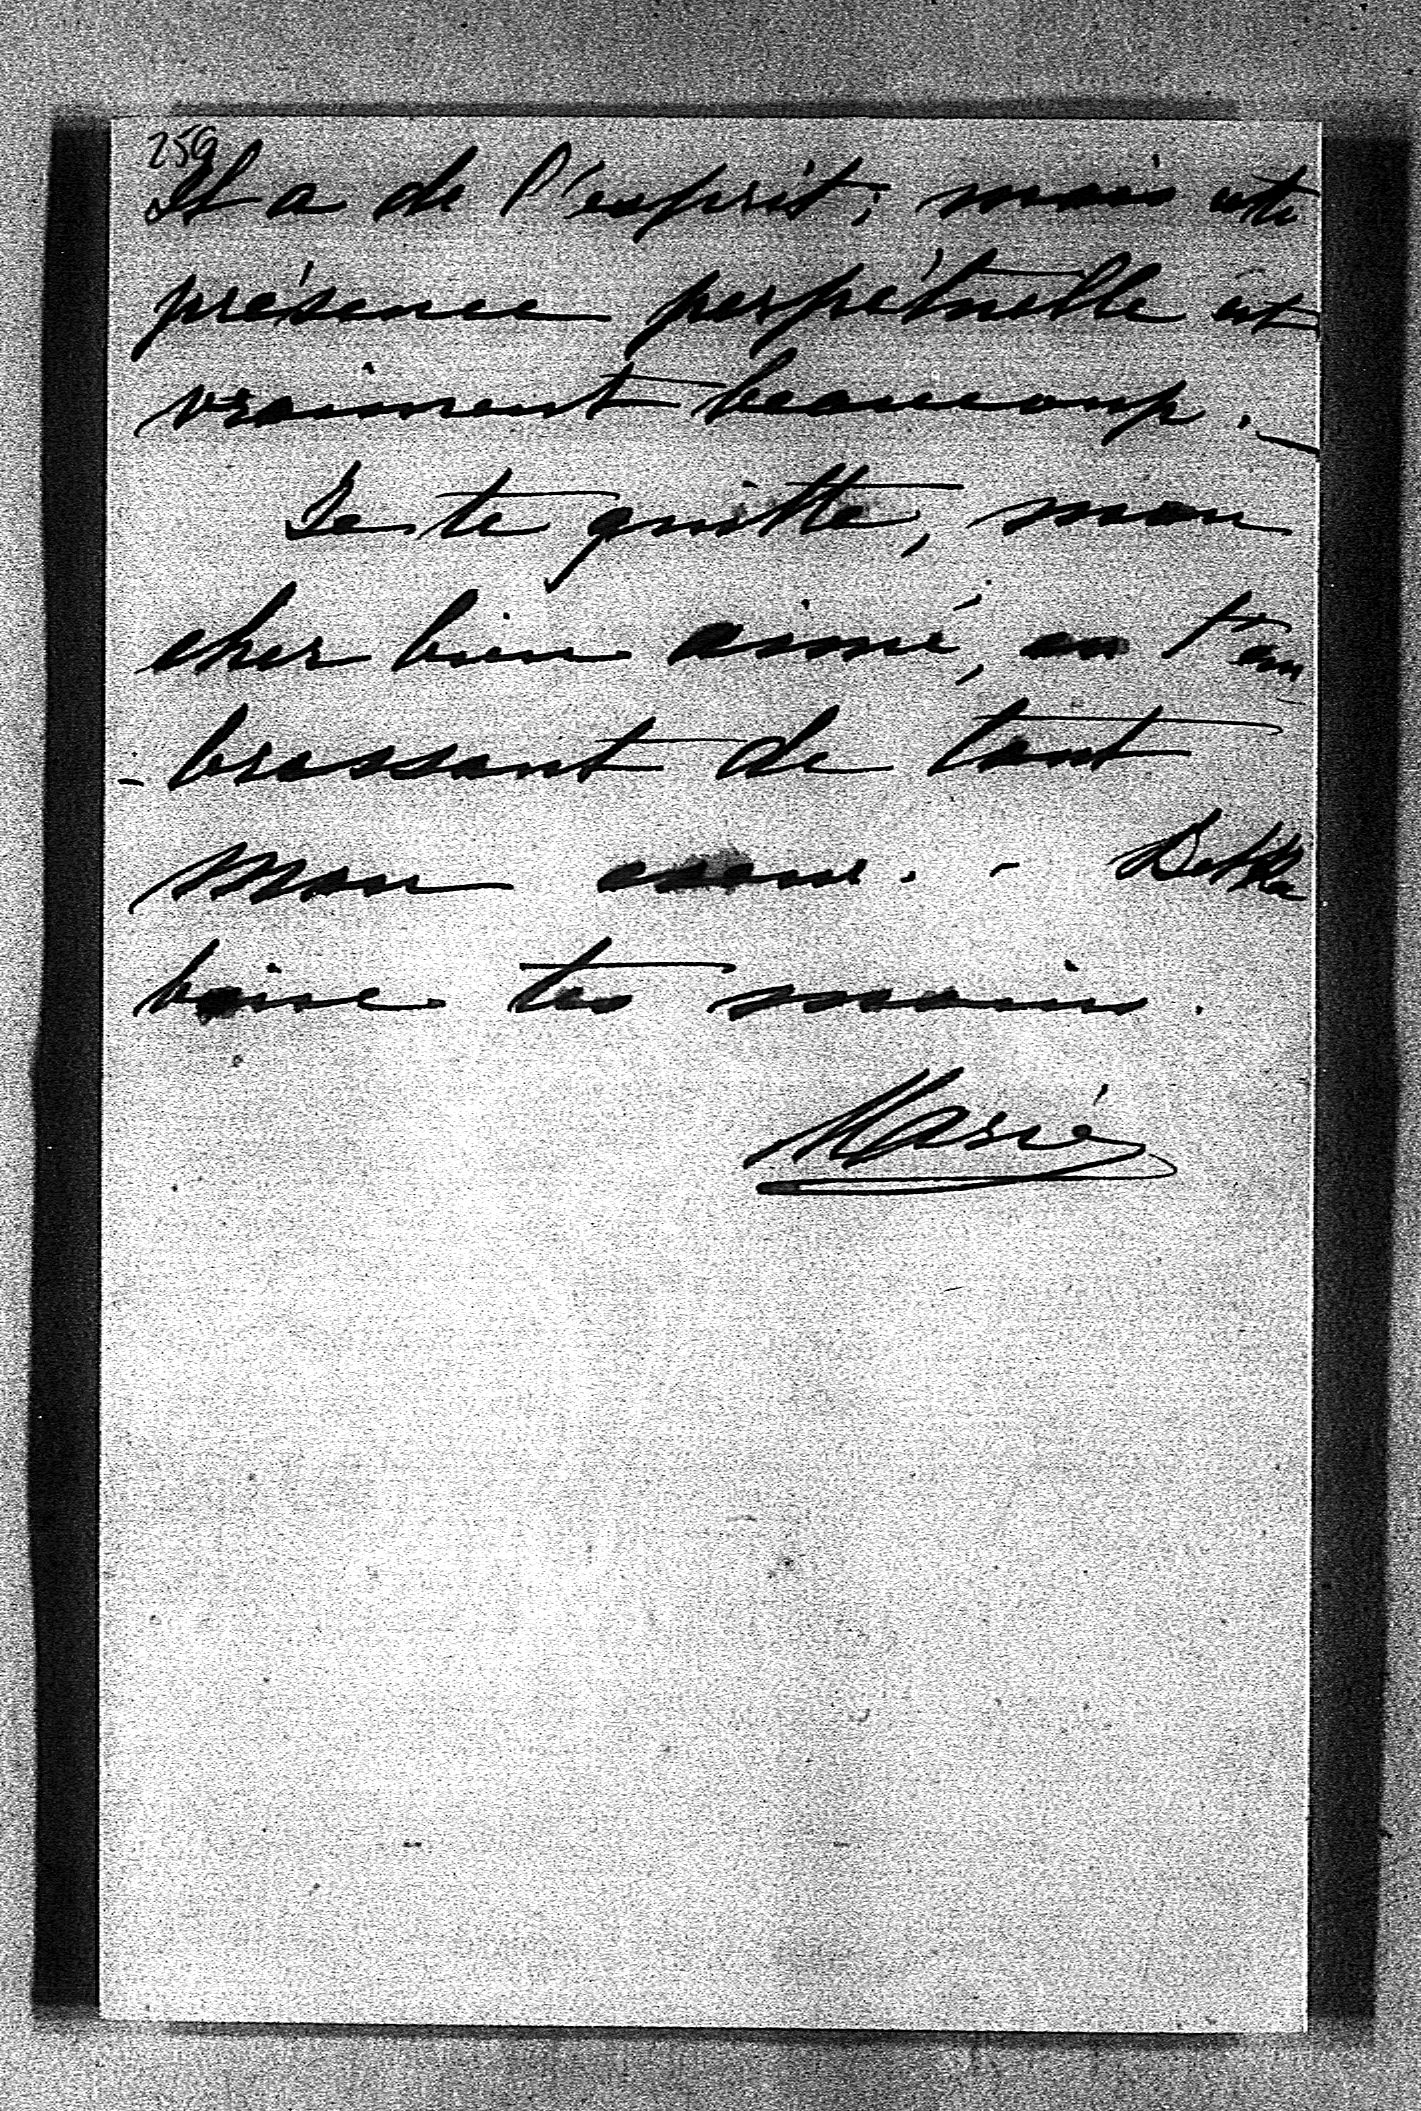 259
Il a de l'esprit; mais cette
présence perpétuelle est
vraiment beaucoup. —
Je te quitte, mon
cher bien aimé, en t'em
-brassant de tout
mon coeur. -
baise tes mains.
Marie